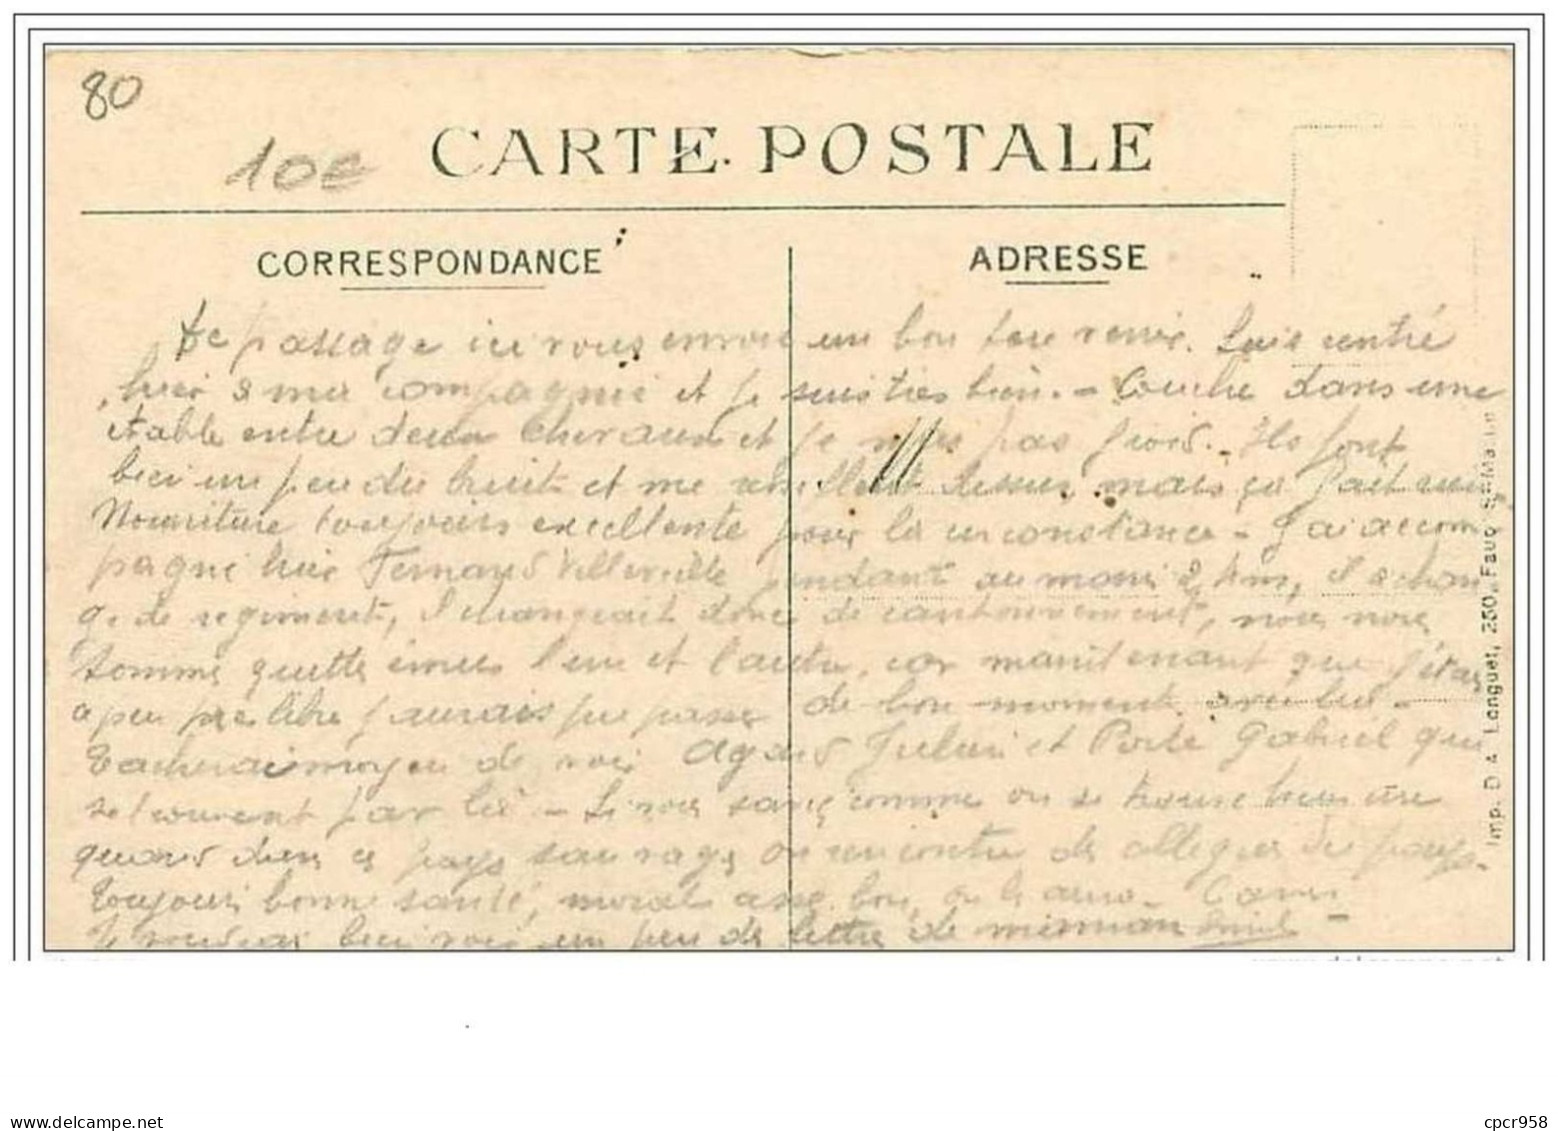 80
10€
CARTE POSTALE
CORRESPONDANCE
ADRESSE
De passage ici vous envoie un bon souvenir. Suis rentré
hier à ma compagnie et je suis très bien. - Couche dans une
étable entre deux chevaux et je n'ai pas froid. - Ils font
bien un peu du bruit et me réveillent mais ça fait rien
Nourriture toujours excellente pour la circonstance - J'ai accom
pagné hier Fernand Villerville pendant au moins 2 kms, il a chan
gé de regiment, il changeait donc de cantonnement, nous nous
somme quitté émus l'un et l'autre, car maintenant que j'étais
a peu pres libre j'aurais pu passer de bon moment avec lui -
Tacherai moyen de voir Agard Julien et Porte Gabriel qui
se trouvent par là - Si vous comme on se trouve bien
quand dans ce pays sauvage on rencontre des collegues du pays -
Toujours bonne santé, moral assez bon,
Je voudrais bien voir un peu de lettre de
Imp. D. A. Longuet, 250, Faub. St-Martin
cpcr958